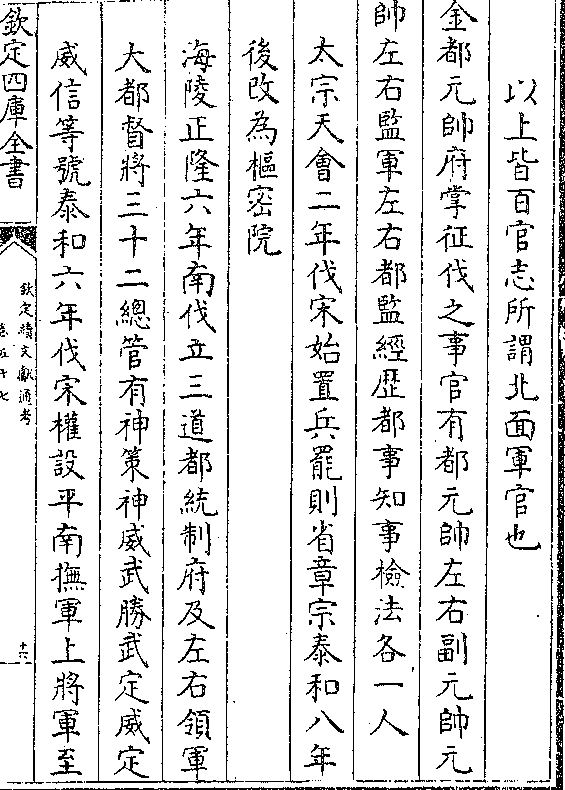 以上皆百官志所謂北面軍官也
金都元帥府掌征伐之事官有都元帥左右副元帥元
帥左右監軍左右都監經歷都事知事檢法各一人
太宗天會二年伐宋始置兵罷則省章宗泰和八年
後改為樞密院
海陵正隆六年南伐立三道都統制府及左右領軍
大都督將三十二總管有神策神威武勝武定威定
威信等號泰和六年伐宋權設平南撫軍上將軍至
欽定四庫全書
欽定續文獻通考
卷五十七
十六